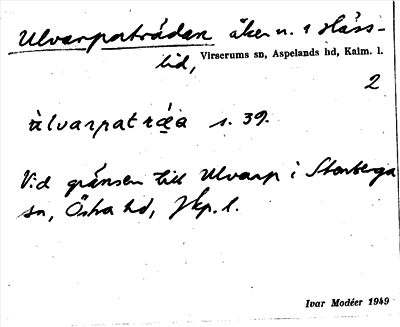 Ulvarpatrådan åker n. 1 Hass-
lid, Virserums sn, Aspelands hd, Kalm. l.
2
ùlvarpatråa s. 39.
Vid gränsen till Ulvarp i Stenberga
sn, Östra hd, Jkp. l.
Ivar Modéer 1949